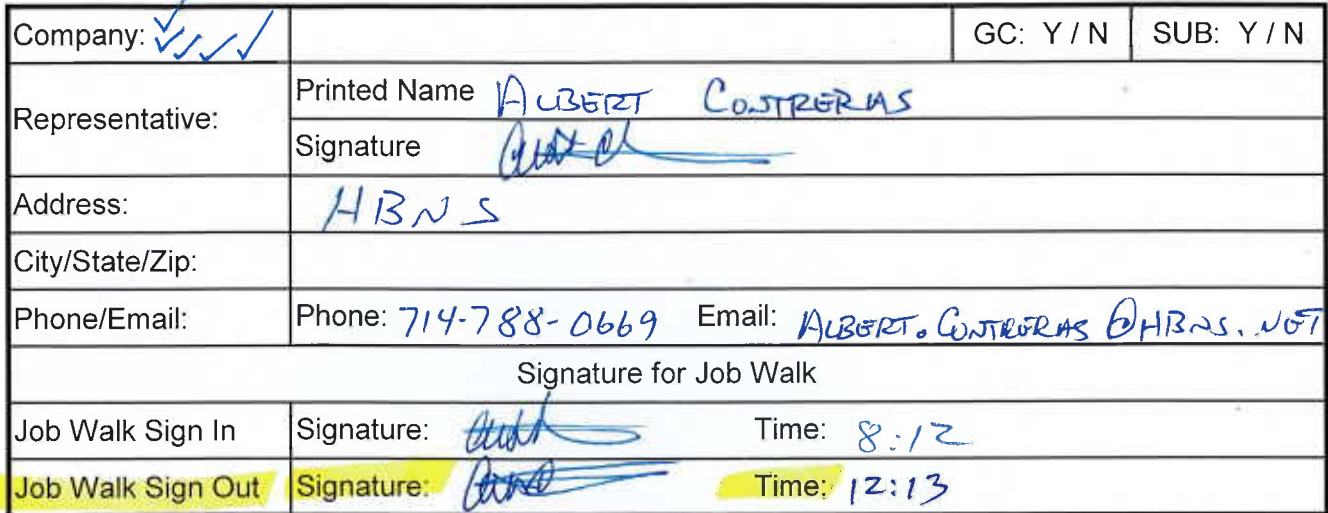 Company: GC: Y / N SUB: Y / N
Representative:
Printed Name ALBERT CONTRERAS
Signature
Address: HBNS
City/State/Zip:
Phone/Email: Phone: 714-788-0669 Email: ALBERT.CONTRERAS@HBNS.NET
Signature for Job Walk
Job Walk Sign In Signature: Time: 8:12
Job Walk Sign Out Signature: Time: 12:13